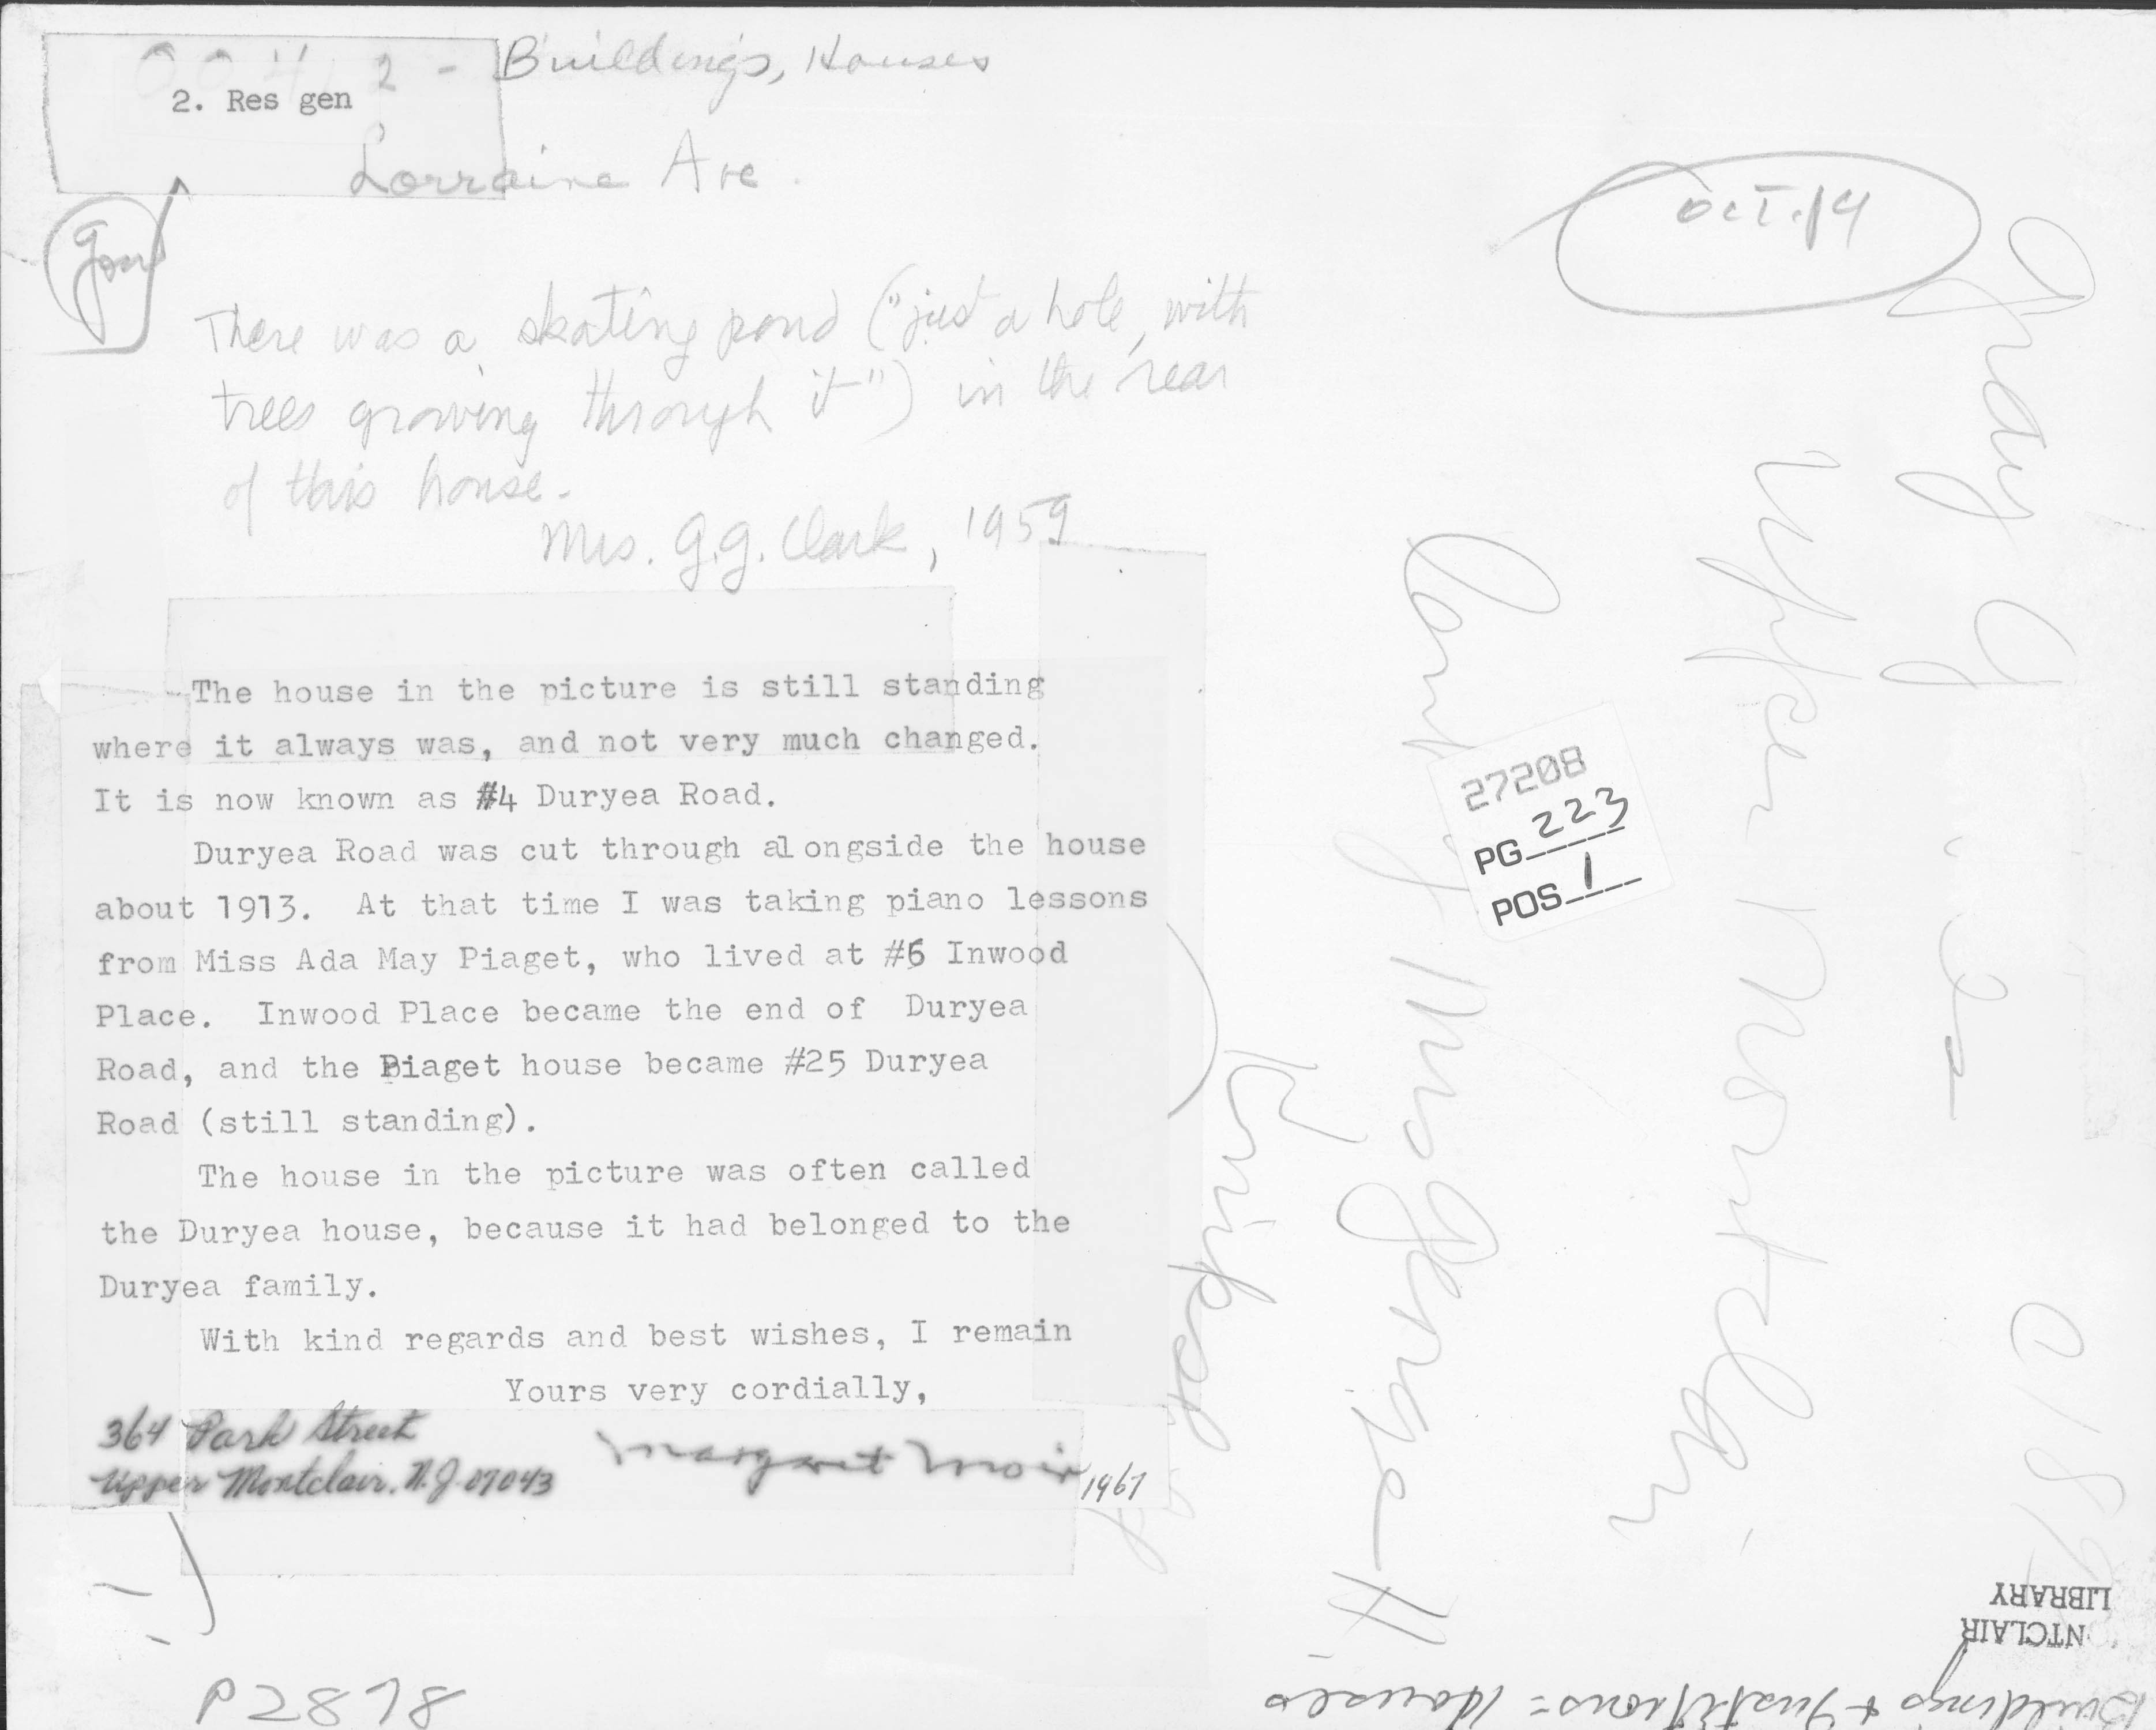 2 - Buildings, Houses
2. Res gen
Lorraine Ave.
OCT. 14
There was a skating pond ("just a hole, with
trees growing through it") in the rear
of this house.
Mrs. G.G. Clark, 1959
The house in the picture is still standing
where it always was, and not very much changed.
It is now known as #4 Duryea Road.
Duryea Road was cut through alongside the house
about 1913. At that time I was taking piano lessons
from Miss Ada May Piaget, who lived at #6 Inwood
Place. Inwood Place became the end of Duryea
Road, and the Piaget house became #25 Duryea
Road (still standing).
The house in the picture was often called
the Duryea house, because it had belonged to the
Duryea family.
With kind regards and best wishes, I remain
Yours very cordially,
364 Park Street
Upper Montclair, N.J. 07043
Margaret Moir
1967
P2878
27208
PG 223
POS 1
Upper Montclair
NTCLAIR
LIBRARY
Buildings & Institutions = Houses